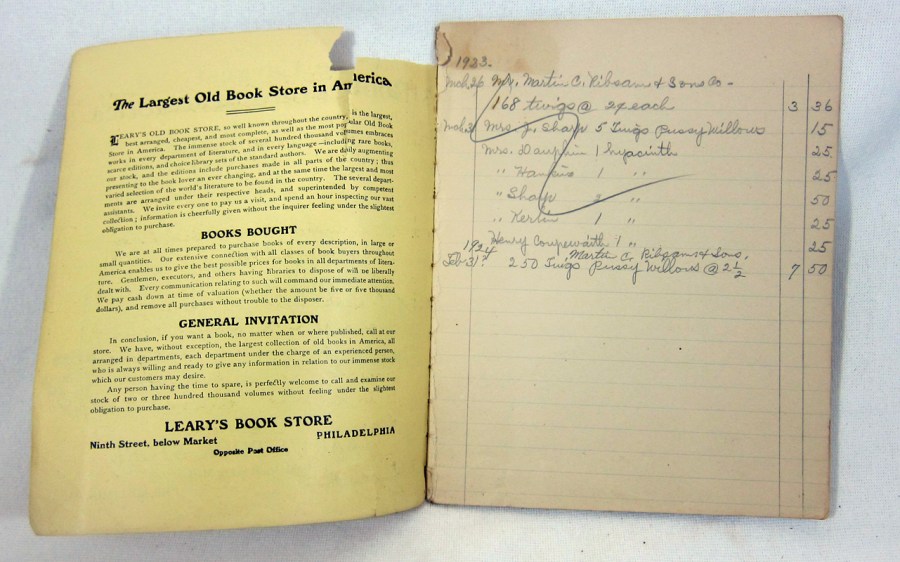 The Largest Old Book Store in America
LEARY'S OLD BOOK STORE, so well known throughout the country, is the largest,
best arranged, cheapest, and most complete, as well as the most popular Old Book
Store in America. The immense stock of several hundred thousand volumes embraces
works in every department of literature, and in every language—including rare books,
scarce editions, and choice library sets of the standard authors. We are daily augmenting
our stock, and the editions include purchases made in all parts of the country; thus
presenting to the book lover an ever changing, and at the same time the largest and most
varied selection of the world's literature to be found in the country. The several depart-
ments are arranged under their respective heads, and superintended by competent
assistants. We invite every one to pay us a visit, and spend an hour inspecting our vast
collection; information is cheerfully given without the inquirer feeling under the slightest
obligation to purchase.
BOOKS BOUGHT
We are at all times prepared to purchase books of every description, in large or
small quantities. Our extensive connection with all classes of book buyers throughout
America enables us to give the best possible prices for books in all departments of litera-
ture. Gentlemen, executors, and others having libraries to dispose of will be liberally
dealt with. Every communication relating to such will command our immediate attention.
We pay cash down at time of valuation (whether the amount be five or five thousand
dollars), and remove all purchases without trouble to the disposer.
GENERAL INVITATION
In conclusion, if you want a book, no matter when or where published, call at our
store. We have, without exception, the largest collection of old books in America, all
arranged in departments, each department under the charge of an experienced person,
who is always willing and ready to give any information in relation to our immense stock
which our customers may desire.
Any person having the time to spare, is perfectly welcome to call and examine our
stock of two or three hundred thousand volumes without feeling under the slightest
obligation to purchase.
LEARY'S BOOK STORE
Ninth Street, below Market PHILADELPHIA
Opposite Post Office
1923.
Mch 26 Mr. Martin C. Ribsam & Sons Co -
168 twigs @ 2¢ each 3 36
Mch 31 Mrs J. Sharp 5 Twigs Pussy Willows 15
Mrs. Dauphin 1 hyacinth 25
" 1 " 25
" Sharp 2 " 50
" Kerlin 1 " 25
Henry 1 " 25
1924 Martin C. Ribsam & Sons,
Feb 31st 250 Twigs Pussy Willows @ 2 1/2 7 50